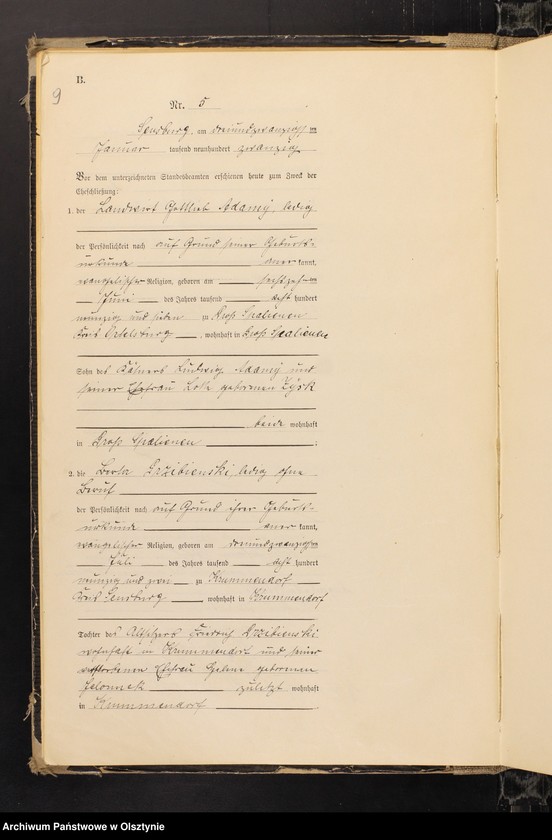 B.
9
Nr. 5
Sensburg, am dreiundzwanzigsten
Januar tausend neunhundert zwanzig
Vor dem unterzeichneten Standesbeamten erschienen heute zum Zweck der
Eheschließung:
1. der Landwirt Gottlieb Adamy, ledig
der Persönlichkeit nach auf Grund seiner Geburts-
urkunde anerkannt,
evangelischer Religion, geboren am sechszehnten
Juni des Jahres tausend acht hundert
neunzig und sieben zu Groß Spalienen
Kreis Ortelsburg, wohnhaft in Groß Spalienen
Sohn des Käthners Ludwig Adamy und
seiner Ehefrau Lotte geborenen Zysk
beide wohnhaft
in Groß Spalienen;
2. die Berta ledig ohne
Beruf
der Persönlichkeit nach auf Grund ihrer Geburts-
urkunde anerkannt,
evangelischer Religion, geboren am dreiundzwanzigsten
Juli des Jahres tausend acht hundert
neunzig und zwei zu Krummendorf
Kreis Sensburg wohnhaft in Krummendorf
Tochter des Altsitzers Friedrich
wohnhaft in Krummendorf und seiner
verstorbenen Ehefrau geborenen
Jelonnek zuletzt wohnhaft
in Krummendorf.
Archiwum Państwowe w Olsztynie